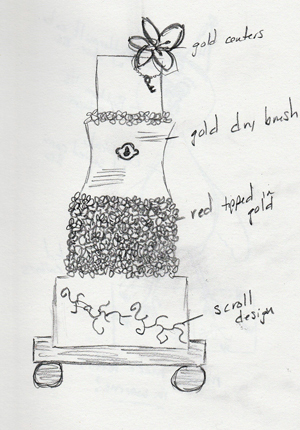 gold centers
gold dry brush
red tipped in
gold
scroll
design